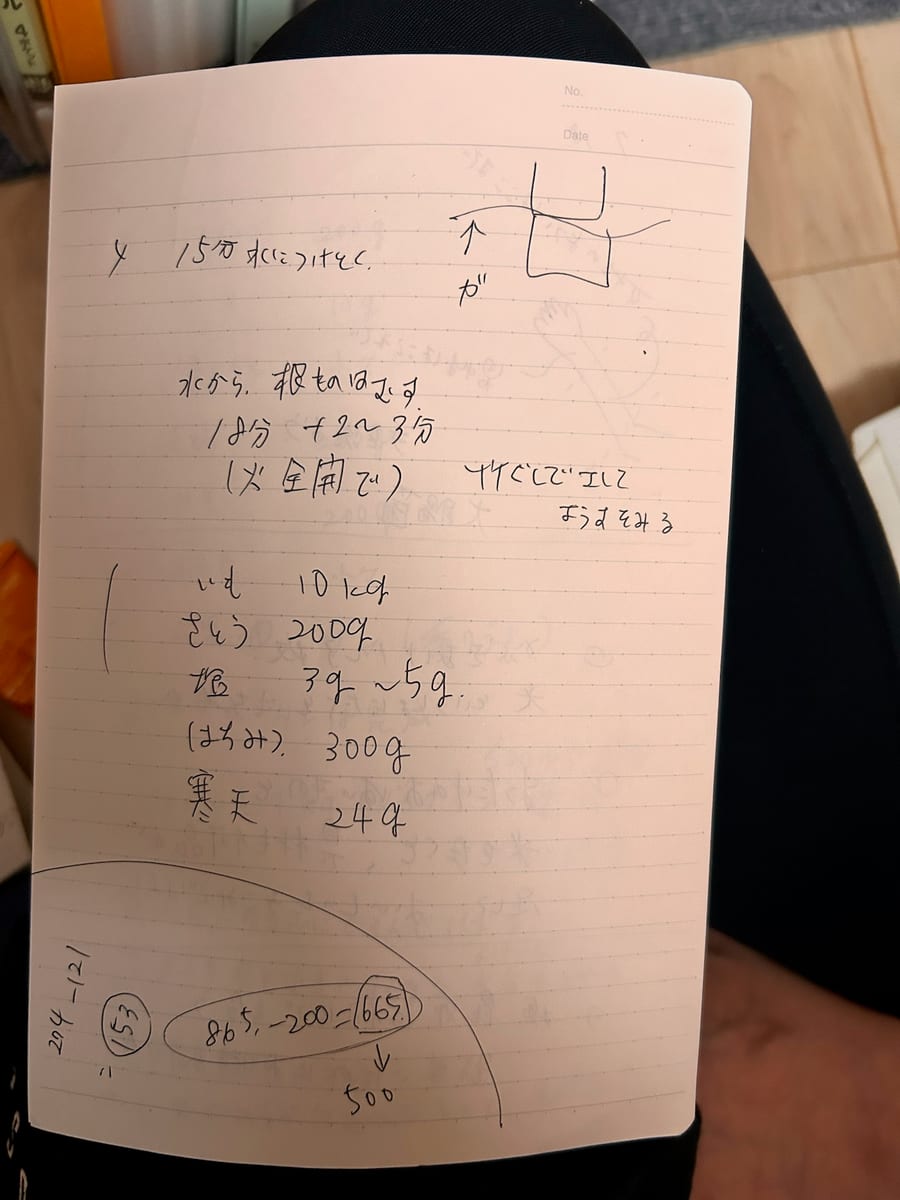 No.
Date
15分 水につけとく.
ガ
水から. 根ものはむす.
18分 +2〜3分
(火 全開で)
ようすをみる
いも 10kg
さとう 200g
塩 3g 〜5g.
(はちみつ). 300g
寒天 24g
865. -200=665.
500
153
=